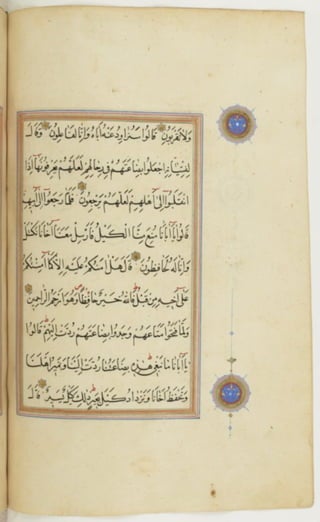 ولا تقربون قالوا سنراود عنه اباه وانا لفاعلون وقال
لفتيانه اجعلوا بضاعتهم في رحالهم لعلهم يعرفونها اذا
انقلبوا الى اهلهم لعلهم يرجعون فلما رجعوا الى ابيهم
قالوا يا ابانا منع منا الكيل فارسل معنا اخانا نكتل
وانا له لحافظون قال هل امنكم عليه الا كما امنتكم
على اخيه من قبل فالله خير حافظا وهو ارحم الراحمين
ولما فتحوا متاعهم وجدوا بضاعتهم ردت اليهم قالوا
يا ابانا ما نبغي هذه بضاعتنا ردت الينا ونمير اهلنا
ونحفظ اخانا ونزداد كيل بعير ذلك كيل يسير قال